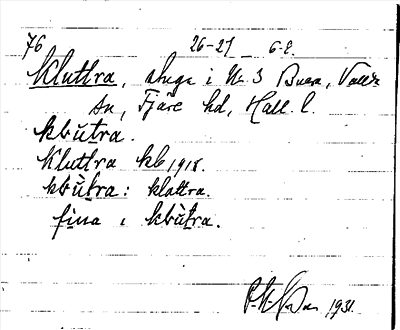 76 26-27 6-8.
Kluttra, stuga i Nr. 3 Buera, Valla
sn, Fjäre hd, Hall. l.
kbùtra.
Kluttra kb 1918.
kbùtra: klattra.
fina i kbùtra.
1931.